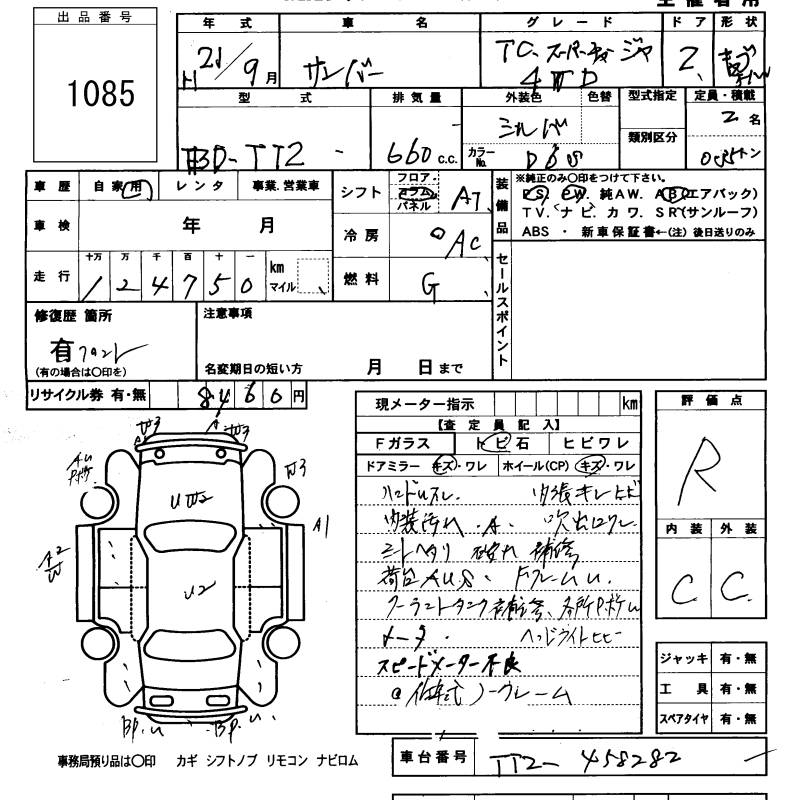 出品番号
1085
年式 車名 グレード ドア 形状
H 21/9月 サンバー TC スーパーチャージャ 4WD 2
型式 排気量 外装色 色替 型式指定 定員・積載
EBD-TT2 660 c.c. シルバ 2名
カラーNo. D6S 類別区分 0.35トン
車歴 自家用 レンタ 事業.営業車
シフト フロア コラム パネル AT
装備品 ※純正のみ〇印をつけて下さい。
PS. PW. 純AW. AB(エアバック)
TV. ナビ. カワ. SR(サンルーフ)
ABS ・ 新車保証書←(注) 後日送りのみ
車検 年 月
冷房 AC
走行 十万 万 千 百 十 一 km マイル
124750
燃料 G
セールスポイント
修復歴 箇所
有 フロント
(有の場合は〇印を)
注意事項
名変期日の短い方 月 日まで
リサイクル券 有・無 8460円
現メーター指示 km
【査定員記入】
Fガラス トビ石 ヒビワレ
ドアミラー キズ・ワレ ホイール(CP) キズ・ワレ
ハンドルスレ 内張キレヒビ
内装汚れ . A . 吹出口ワレ
シートヘタリ 破れ 補修
荷台AUS. FフレームU.
クーラントタンク補修, 各所Pボケu
メータ . ヘッドライトヒビ
スピードメーター不良
ノークレーム
評価点
R
内装 外装
C C
ジャッキ 有・無
工具 有・無
スペアタイヤ 有・無
W3 A W3
AU Pボケ W3
UW2
A2 W A1
U2
BP.u BP.u
事務局預り品は〇印 カギ シフトノブ リモコン ナビロム
車台番号 TT2-458282